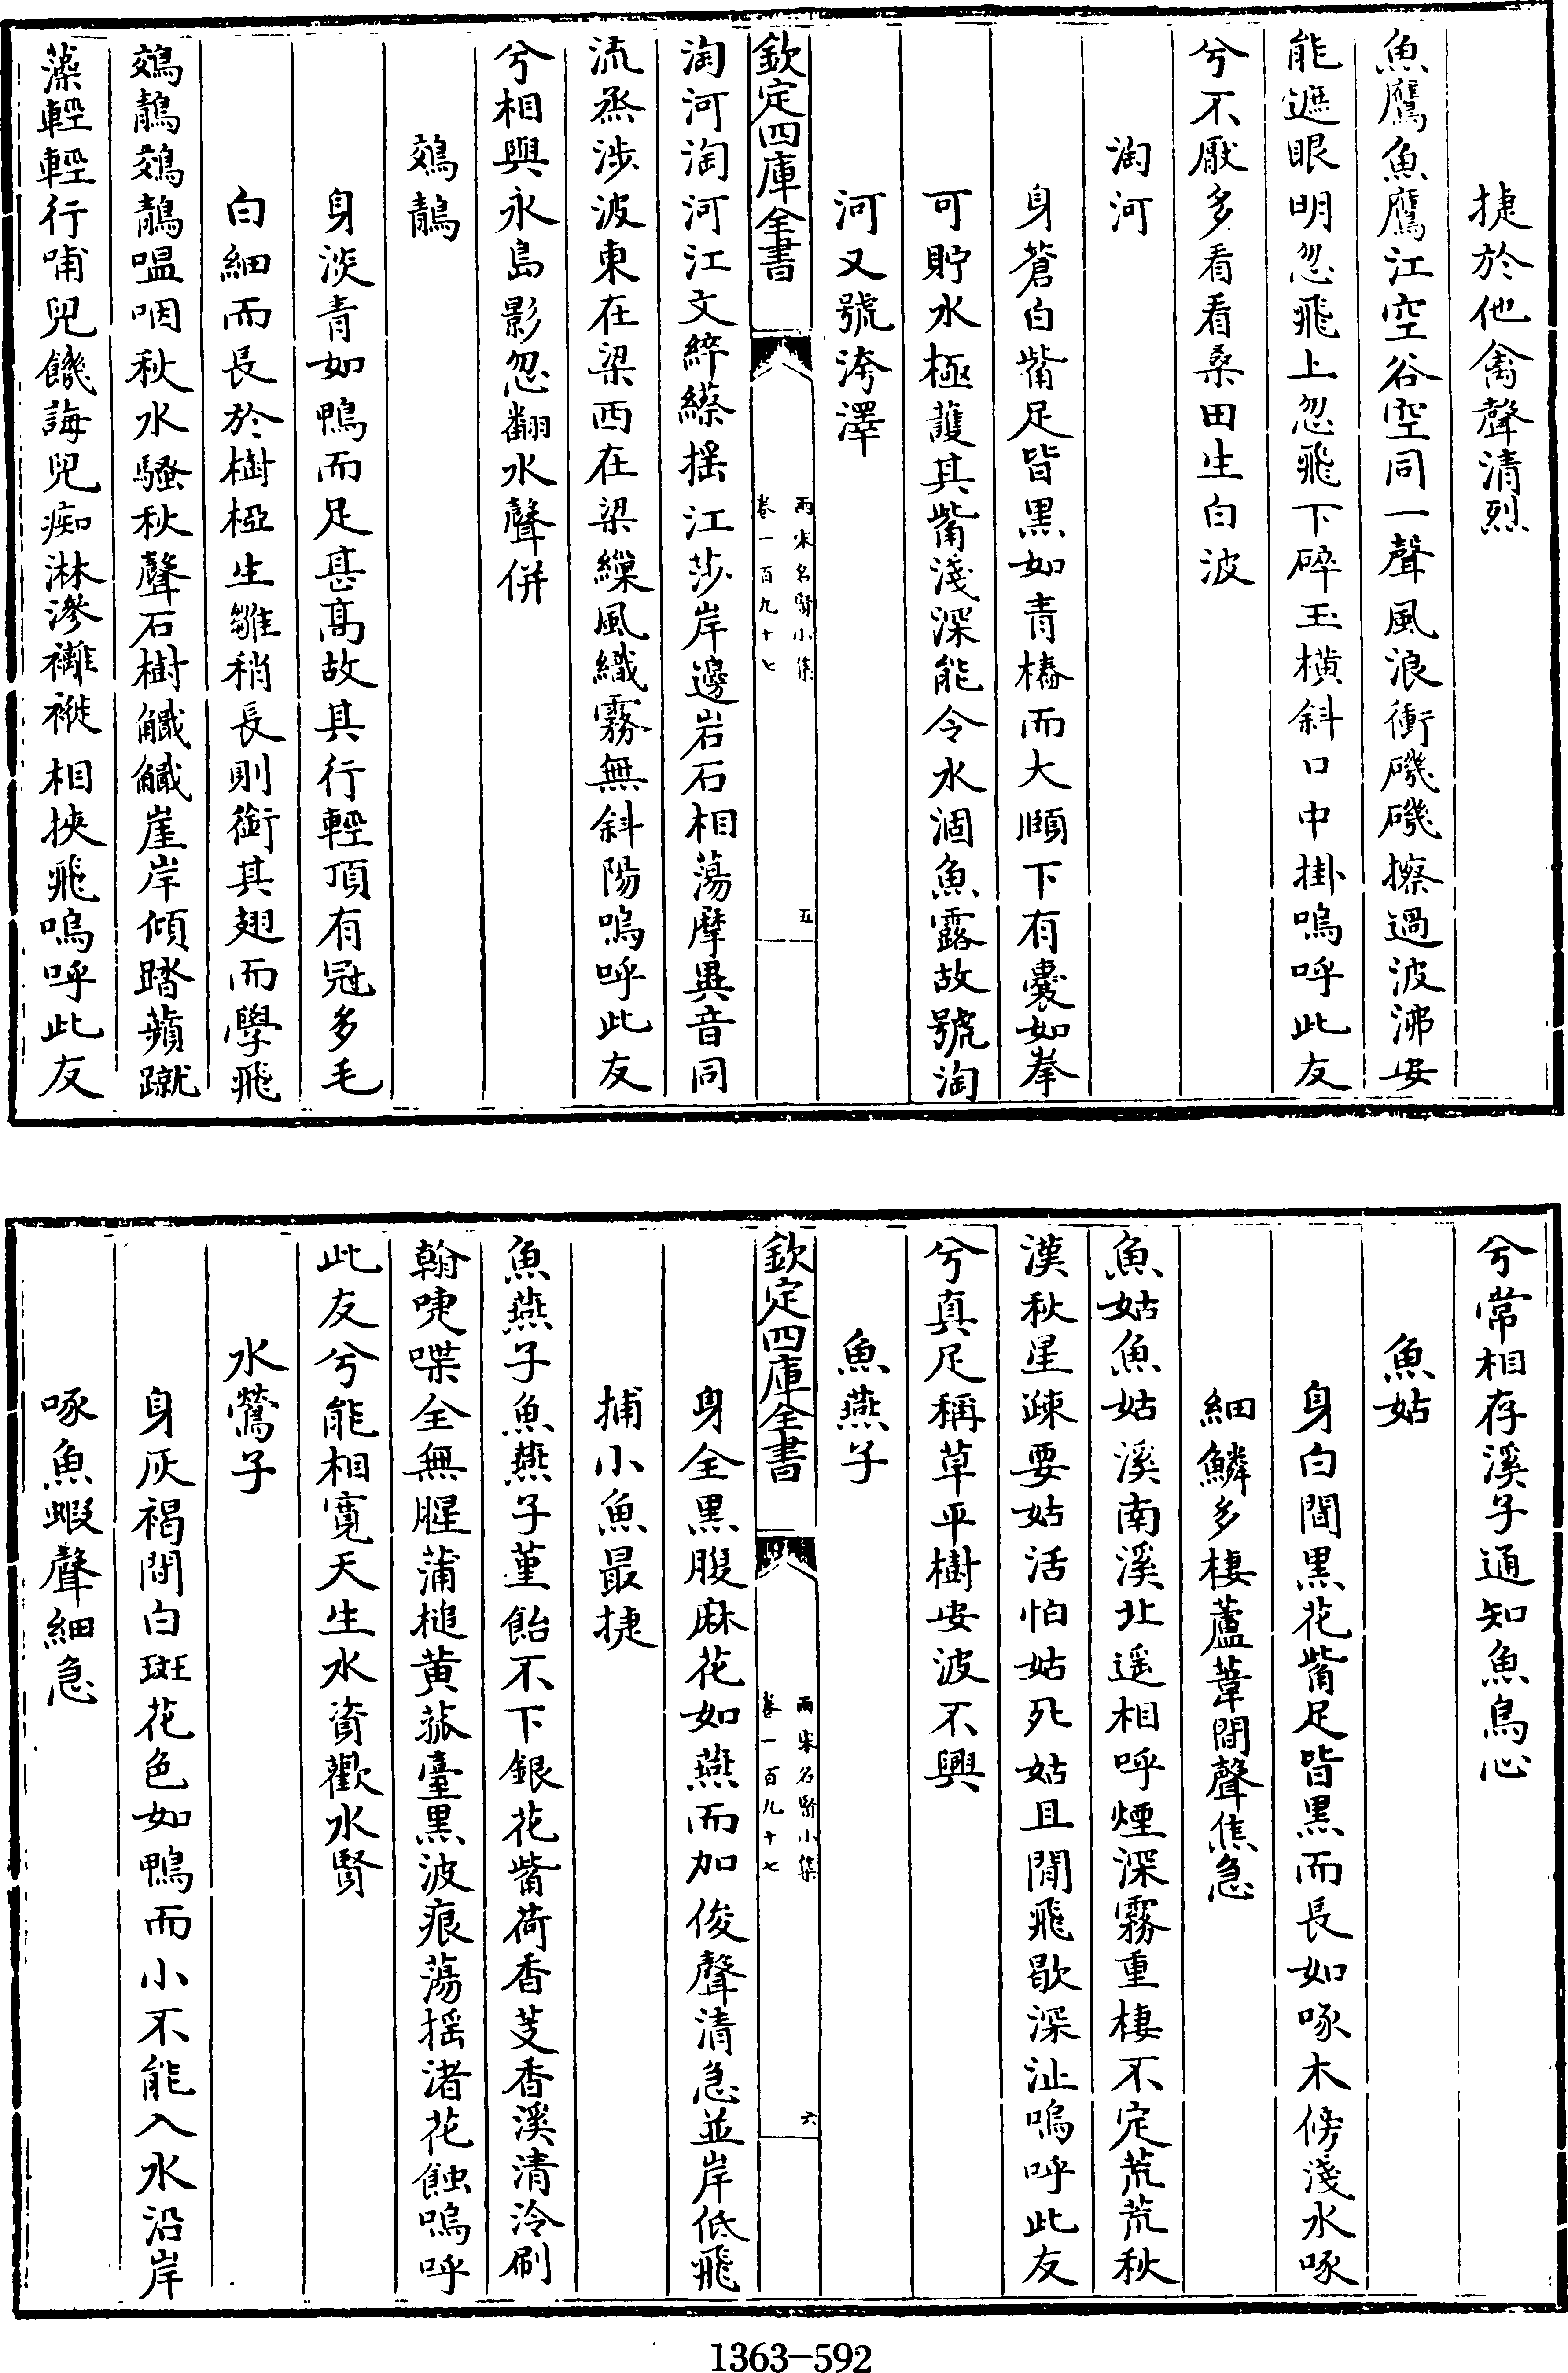 捷於他禽聲清烈
魚鷹魚鷹江空谷空同一聲風浪衝磯磯擦過波沸安
能遮眼明忽飛上忽飛下碎玉橫斜口中掛嗚呼此友
兮不厭多看看桑田生白波
淘河
身蒼白觜足皆黑如青樁而大頤下有囊如拳
可貯水極護其觜淺深能令水涸魚露故號淘
河又號洿澤
欽定四庫全書
兩宋名賢小集
卷一百九十七
五
淘河淘河江文綷縩揺江莎岸邊岩石相蕩摩異音同
流烝涉波東在梁西在梁繅風織霧無斜陽嗚呼此友
兮相與永島影忽翻水聲併
鵁鶄
身淡青如鴨而足甚高故其行輕頂有冠多毛
白細而長於樹椏生雛稍長則銜其翅而學飛
鵁鶄鵁鶄嗢咽秋水騷秋聲石樹觿觿崖岸傾踏蘋蹴
藻輕輕行哺兒饑誨兒痴淋滲褵褷相挾飛嗚呼此友
兮常相存溪子通知魚鳥心
魚姑
身白間黑花觜足皆黑而長如啄木傍淺水啄
細鱗多棲蘆葦間聲焦急
魚姑魚姑溪南溪北遥相呼煙深霧重棲不定荒荒秋
漢秋星疎要姑活怕姑死姑且閒飛歇深沚嗚呼此友
兮真足稱草平樹安波不興
魚燕子
欽定四庫全書
兩宋名賢小集
卷一百九十七
六
身全黑腹麻花如燕而加俊聲清急並岸低飛
捕小魚最捷
魚燕子魚燕子堇飴不下銀花觜荷香芰香溪清泠刷
翰唼喋全無腥蒲槌黄菰臺黑波痕蕩揺渚花蝕嗚呼
此友兮能相寛天生水資歡水賢
水鶯子
身灰褐間白斑花色如鴨而小不能入水沿岸
啄魚蝦聲細急
1363-592